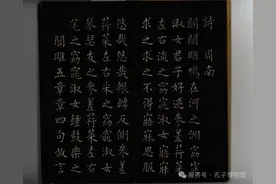 詩 周南
關關雎鳩在河之洲窈窕
淑女君子好逑參差荇菜
左右流之窈窕淑女寤寐
求之求之不得寤寐思服
悠哉悠哉輾轉反側參差
荇菜左右采之窈窕淑女
琴瑟友之參差荇菜左右
芼之窈窕淑女鍾鼓樂之
關雎五章章四句故言
服务号 · 孔子博物馆